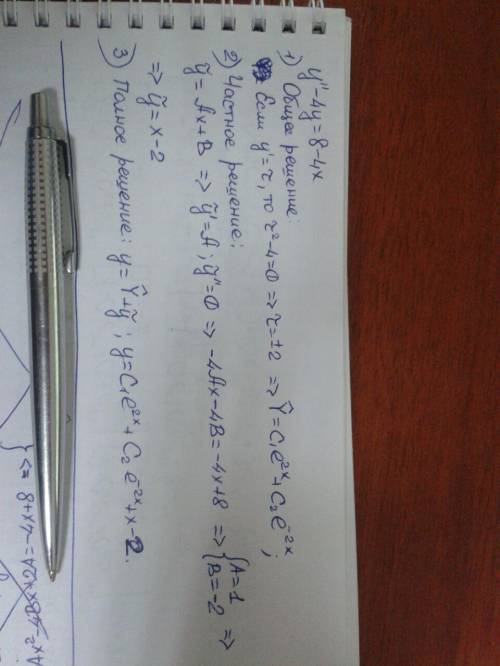 y''-4y=8-4x
1) Общее решение:
Если y'=r, то r²-4=0 => r=±2 => Ŷ=C₁e²ˣ+C₂e⁻²ˣ;
2) Частное решение:
ỹ=Ax+B => ỹ'=A; ỹ''=0 => -4Ax-4B=-4x+8 => {A=1 B=-2 =>
=> ỹ=x-2
3) Полное решение: y=Ŷ+ỹ; y=C₁e²ˣ+C₂e⁻²ˣ+x-2.